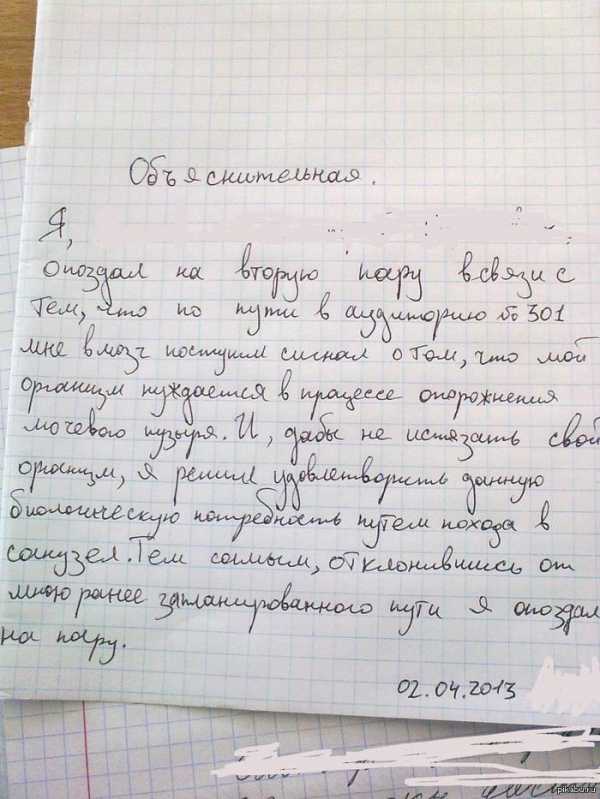 Объяснительная.
Я,
опоздал на вторую пару в связи с
тем, что по пути в аудиторию № 301
мне в мозг поступил сигнал о том, что мой
организм нуждается в процессе опорожнения
мочевого пузыря. И, дабы не истязать свой
организм, я решил удовлетворить данную
биологическую потребность путем похода в
санузел. Тем самым, отклонившись от
мною ранее запланированного пути я опоздал
на пару.
02.04.2013
pikabu.ru